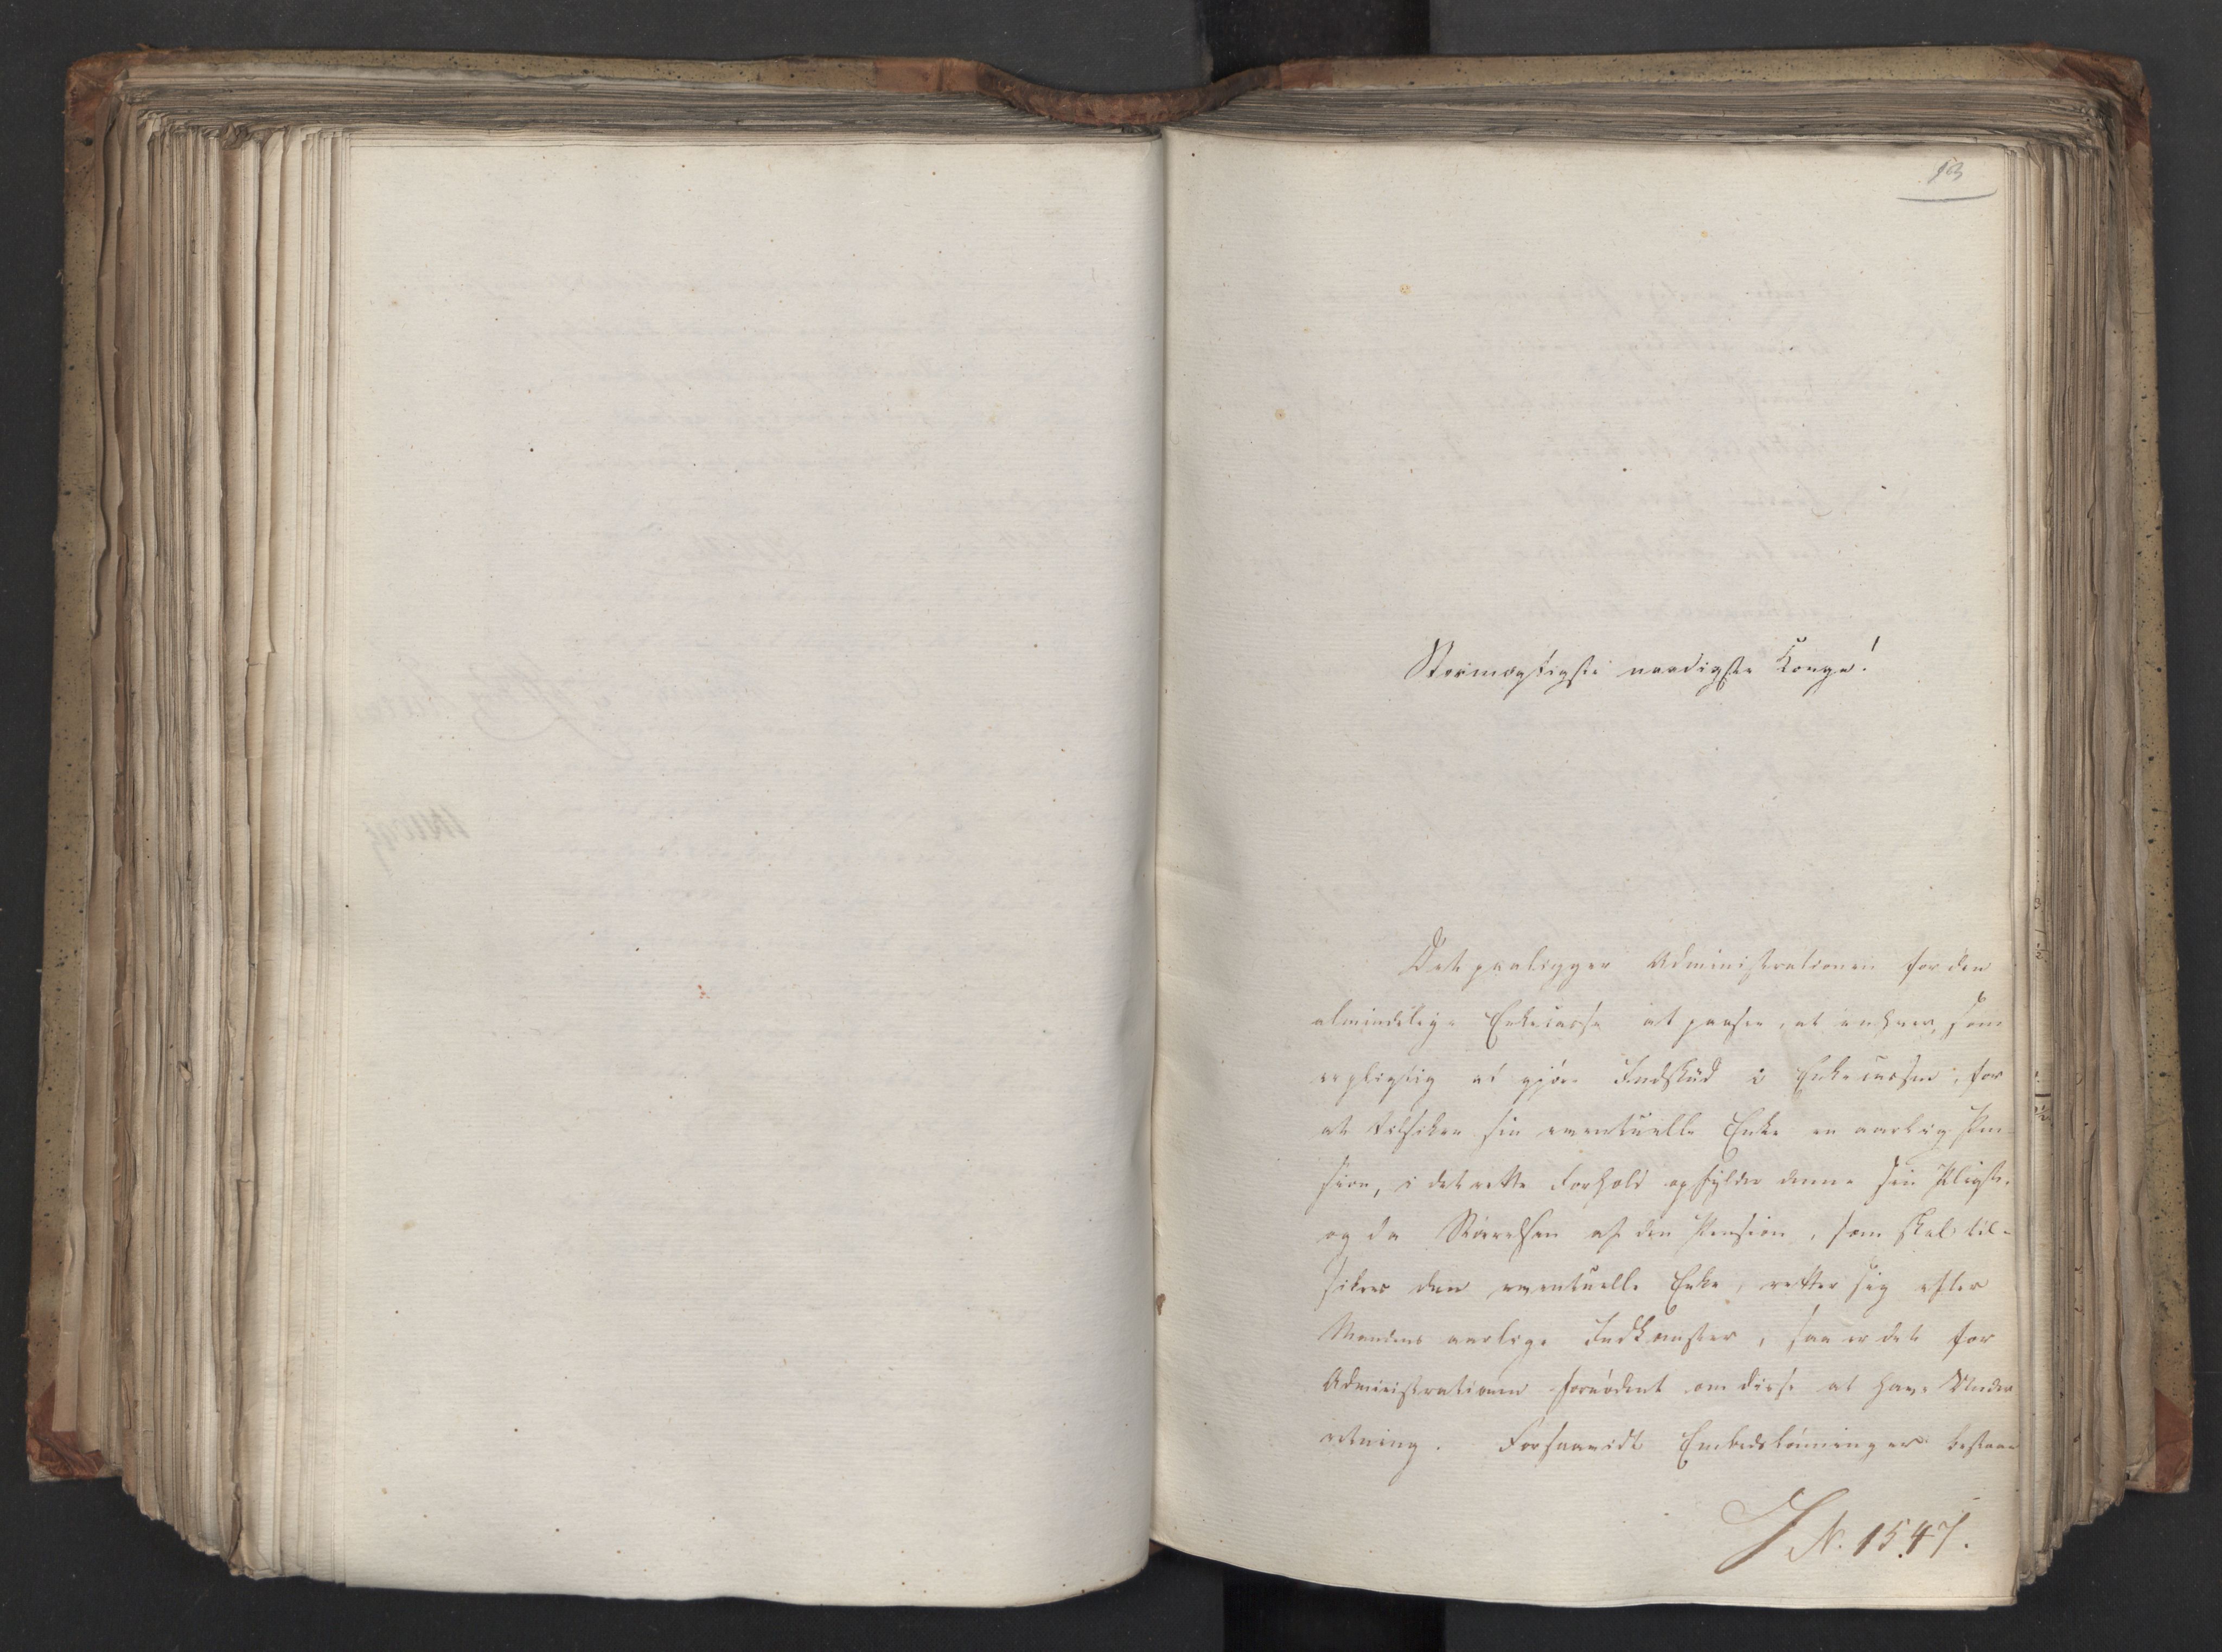 53
Stormægtigste naadigste Konge!
Det paaligger Administrationen for den
almindelige Enkecasse at paasee, at enhver, som
er pligtig at gjöre Indskud i Enkecassen, for
at tilsikre sin eventuelle Enke en aarlig Pen
sion, i det rette Forhold opfylder denne sin Pligt,
og da Störrelsen af den Pension, som skal til-
sikres den eventuelle Enke, retter sig efter
Mandens aarlige Indkomster, saa er det for
Administrationen fornödent om disse at have Under
retning. Forsaavidt Embedslönninger bestaae
J N. 1547.